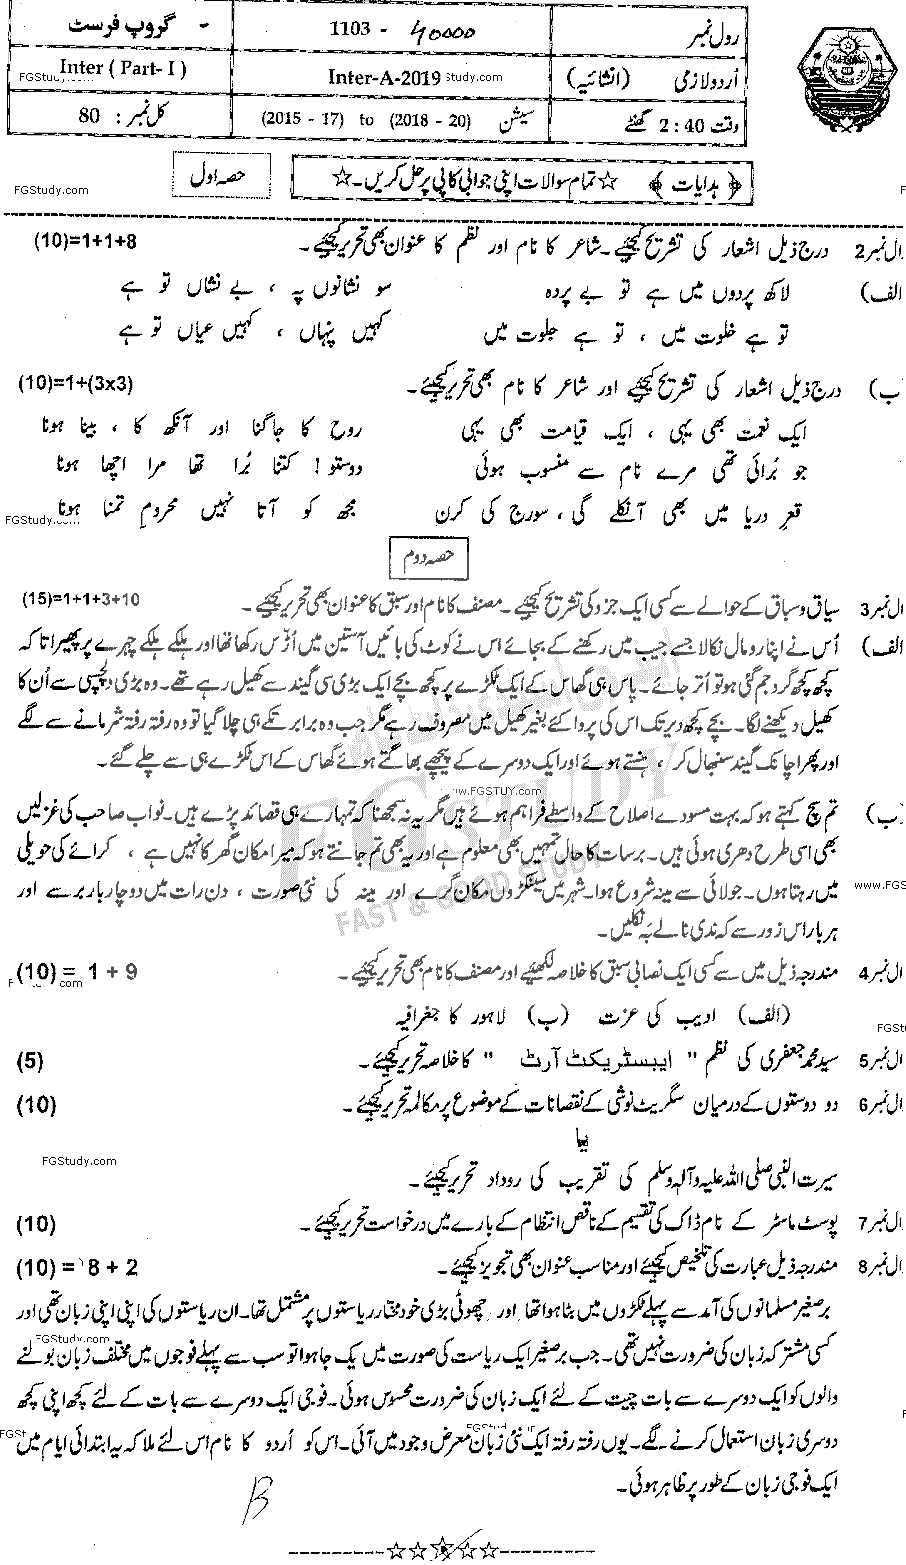 رول نمبر 1103 - 40000 گروپ فرسٹ -
اُردو لازمی (انشائیہ) Inter-A-2019 Study.com Inter ( Part- I ) FGStudy
وقت 2 : 40 گھنٹے سیشن (2015 - 17) to (2018 - 20) کل نمبر : 80
﴿ ہدایات ﴾ ☆ تمام سوالات اپنی جوابی کاپی پر حل کریں۔ ☆ حصہ اول
FGStudy.com
ال نمبر 2 درج ذیل اشعار کی تشریح کیجیئے۔ شاعر کا نام اور نظم کا عنوان بھی تحریر کیجیئے۔ (10)=1+1+8
الف) لاکھ پردوں میں ہے تو بے پردہ سو نشانوں پہ ، بے نشاں تو ہے
تو ہے خلوت میں ، تو ہے جلوت میں کہیں پنہاں ، کہیں عیاں تو ہے
ب) درج ذیل اشعار کی تشریح کیجیئے اور شاعر کا نام بھی تحریر کیجیئے۔ (10)=1+(3x3)
ایک نعمت بھی یہی ، ایک قیامت بھی یہی روح کا جاگنا اور آنکھ کا ، بینا ہونا
جو بُرائی تھی مرے نام سے منسوب ہوئی دوستو! کتنا بُرا تھا مرا اچھا ہونا
قعرِ دریا میں بھی آ نکلے گی ، سورج کی کرن مجھ کو آتا نہیں محرومِ تمنا ہونا
FGStudy.com
حصہ دوم
ال نمبر 3 سیاق و سباق کے حوالے سے کسی ایک جزو کی تشریح کیجیئے۔ مصنف کا نام اور سبق کا عنوان بھی تحریر کیجیئے۔ (15)=1+1+3+10
الف) اُس نے اپنا رومال نکالا جسے جیب میں رکھنے کے بجائے اس نے کوٹ کی بائیں آستین میں اُڑس رکھا تھا اور ہلکے ہلکے چہرے پر پھیرا تا کہ
کچھ کچھ گرد جم گئی ہو تو اُتر جائے۔ پاس ہی گھاس کے ایک ٹکڑے پر کچھ بچے ایک بڑی سی گیند سے کھیل رہے تھے۔ وہ بڑی دلچسپی سے اُن کا
کھیل دیکھنے لگا۔ بچے کچھ دیر تک اس کی پروا کئے بغیر کھیل میں مصروف رہے مگر جب وہ برابر تکے ہی چلا گیا تو وہ رفتہ رفتہ شرمانے سے لگے
اور پھر اچانک گیند سنبھال کر ، ہنستے ہوئے اور ایک دوسرے کے پیچھے بھاگتے ہوئے گھاس کے اس ٹکڑے ہی سے چلے گئے۔
ww.FGSTUY.COM
FGSTUDY
FAST & GOOD STUDY
ب) تم سچ کہتے ہو کہ بہت مسودے اصلاح کے واسطے فراہم ہوئے ہیں مگر یہ نہ سمجھنا کہ تمہارے ہی قصائد پڑے ہیں۔ نواب صاحب کی غزلیں
بھی اسی طرح دھری ہوئی ہیں۔ برسات کا حال تمہیں بھی معلوم ہے اور یہ بھی تم جانتے ہو کہ میرا مکان گھر کا نہیں ہے ، کرائے کی حویلی
میں رہتا ہوں۔ جولائی سے مینہ شروع ہوا۔ شہر میں سینکڑوں مکان گرے اور مینہ کی نئی صورت ، دن رات میں دو چار بار برسے اور
ہر بار اس زور سے کہ ندی نالے بہ نکلیں۔
www.FGS
ال نمبر 4 مندرجہ ذیل میں سے کسی ایک نصابی سبق کا خلاصہ لکھیئے اور مصنف کا نام بھی تحریر کیجیئے۔ (10) = 1 + 9
(الف) ادیب کی عزت (ب) لاہور کا جغرافیہ
FGSt
ال نمبر 5 سید محمد جعفری کی نظم " ایبسٹریکٹ آرٹ " کا خلاصہ تحریر کیجیئے۔ (5)
ال نمبر 6 دو دوستوں کے درمیان سگریٹ نوشی کے نقصانات کے موضوع پر مکالمہ تحریر کیجیئے۔ (10)
یا
FGStudy.com
سیرت النبی صلی اللہ علیہ وآلہ وسلم کی تقریب کی روداد تحریر کیجیئے۔
ال نمبر 7 پوسٹ ماسٹر کے نام ڈاک کی تقسیم کے ناقص انتظام کے بارے میں درخواست تحریر کیجیئے۔ (10)
ال نمبر 8 مندرجہ ذیل عبارت کی تلخیص کیجیئے اور مناسب عنوان بھی تجویز کیجیئے۔ (10) = 8 + 2
برصغیر مسلمانوں کی آمد سے پہلے ٹکڑوں میں بٹا ہوا تھا اور چھوٹی بڑی خود مختار ریاستوں پر مشتمل تھا۔ ان ریاستوں کی اپنی اپنی زبان تھی اور
کسی مشترکہ زبان کی ضرورت نہیں تھی۔ جب برصغیر ایک ریاست کی صورت میں یک جا ہوا تو سب سے پہلے فوجوں میں مختلف زبان بولنے
FGStudy.com
والوں کو ایک دوسرے سے بات چیت کے لئے ایک زبان کی ضرورت محسوس ہوئی۔ فوجی ایک دوسرے سے بات کے لئے کچھ اپنی کچھ
دوسری زبان استعمال کرنے لگے۔ یوں رفتہ رفتہ ایک نئی زبان معرض وجود میں آئی۔ اس کو اُردو کا نام اس لئے ملا کہ یہ ابتدائی ایام میں
ایک فوجی زبان کے طور پر ظاہر ہوئی۔
B